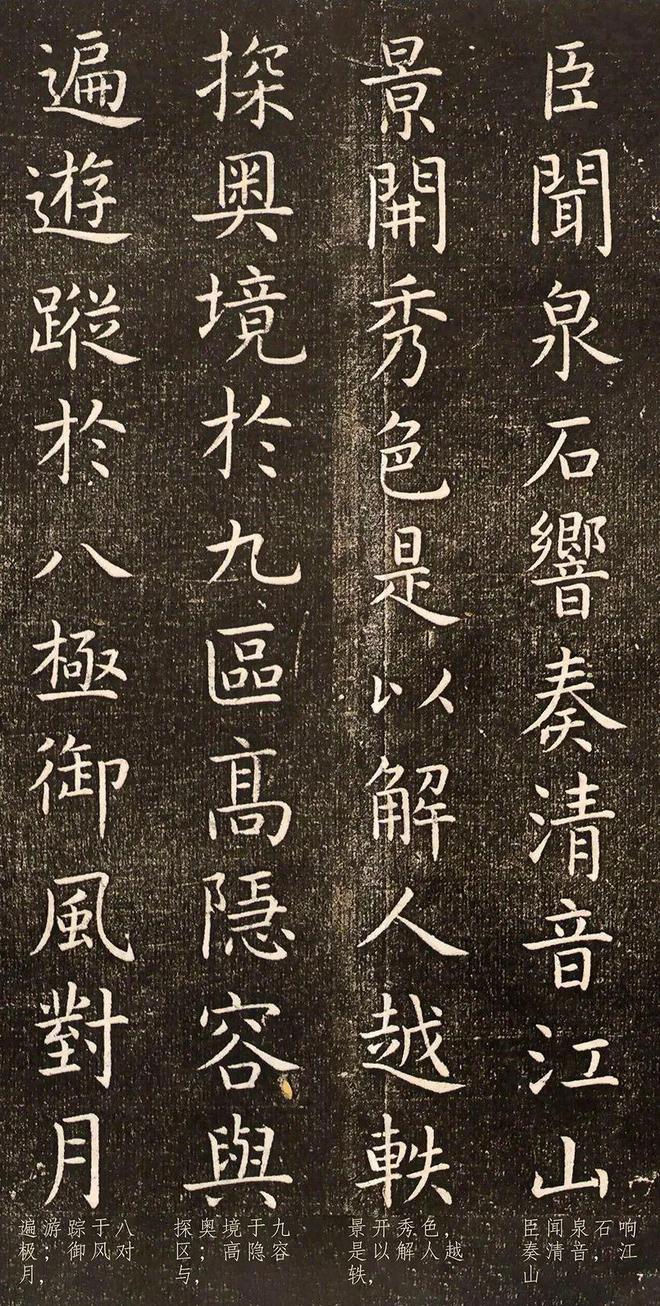 臣聞泉石響奏清音江山
景開秀色是以解人越軼
探奥境於九區高隱容與
遍遊蹤於八極御風對月
臣闻泉石响
奏清音，江
山
景开秀色，
是以解人越
轶，
探奥境于九
区；高隐容
与，
遍游踪于八
极；御风对
月，